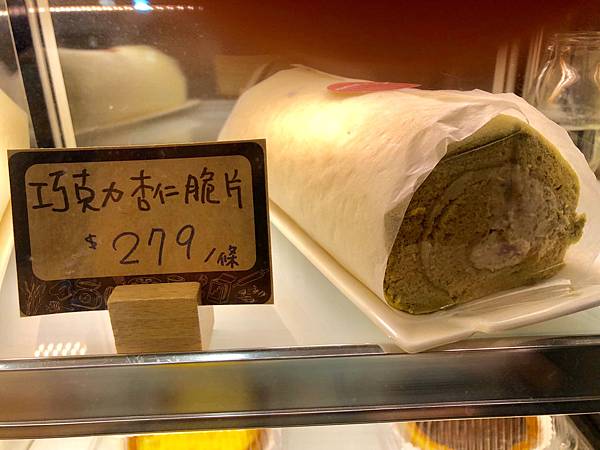 巧克力杏仁脆片
$279/條